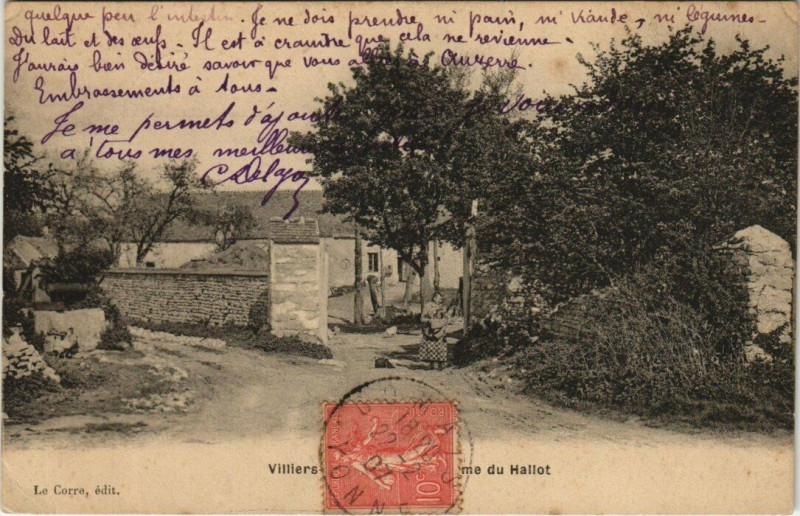 quelque peu l'intestin. Je ne dois prendre, ni pain, ni viande, ni légumes-
Du lait et des œufs. Il est à craindre que cela ne revienne-
J'aurais bien désiré savoir que vous à Auxerre.
Embrassements à tous-
Je me permets d'ajouter vous
à tous mes meilleurs
C Delajon
Villiers- me du Hallot
10c
YONNE
Le Corre, édit.